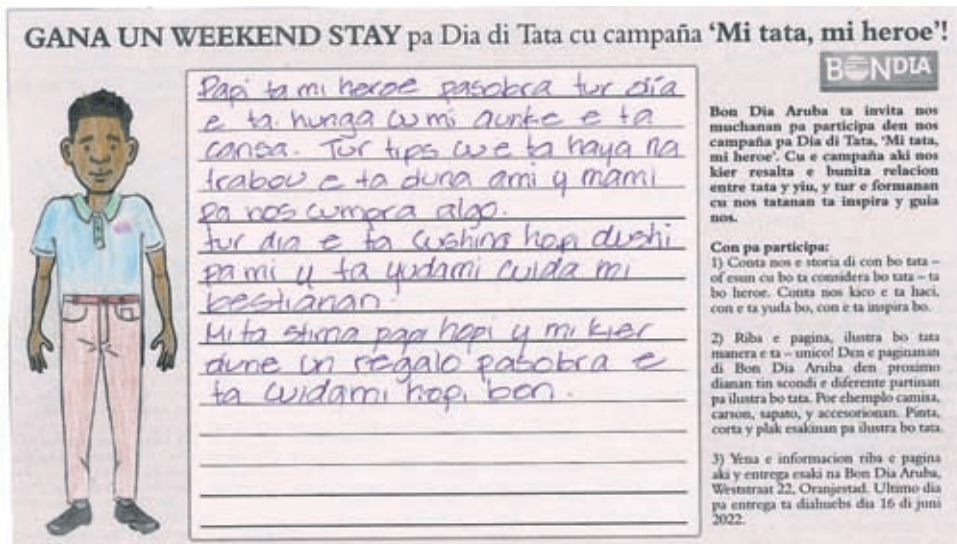 GANA UN WEEKEND STAY pa Dia di Tata cu campaña ‘Mi tata, mi heroe’!
BONDIA
Papi ta mi heroe pasobra tur día
e ta hunga cu mi aunke e ta
cansa. Tur tips cu e ta haya na
trabou e ta duna ami y mami
pa nos cumpra algo.
tur dia e ta cushina hopi dushi
pa mi y ta yudami cuida mi
bestianan.
Mi ta stima papi hopi y mi kier
dune un regalo pasobra e
ta cuidami hopi bon.
Bon Dia Aruba ta invita nos
muchanan pa participa den nos
campaña pa Dia di Tata, ‘Mi tata,
mi heroe’. Cu e campaña aki nos
kier resalta e bunita relacion
entre tata y yiu, y tur e formanan
cu nos tatanan ta inspira y guia
nos.
Con pa participa:
1) Conta nos e storia di con bo tata –
of esun cu bo ta considera bo tata – ta
bo heroe. Conta nos kico e ta haci,
con e ta yuda bo, con e ta inspira bo.
2) Riba e pagina, ilustra bo tata
manera e ta – unico! Den e paginanan
di Bon Dia Aruba den proximo
dianan tin scondi e diferente partinan
pa ilustra bo tata. Por ehemplo camisa,
carson, sapato, y accesorionan. Pinta,
corta y plak esakinan pa ilustra bo tata.
3) Yena e informacion riba e pagina
aki y entrega esaki na Bon Dia Aruba,
Weststraat 22, Oranjestad. Ultimo dia
pa entrega ta diahuebs dia 16 di juni
2022.